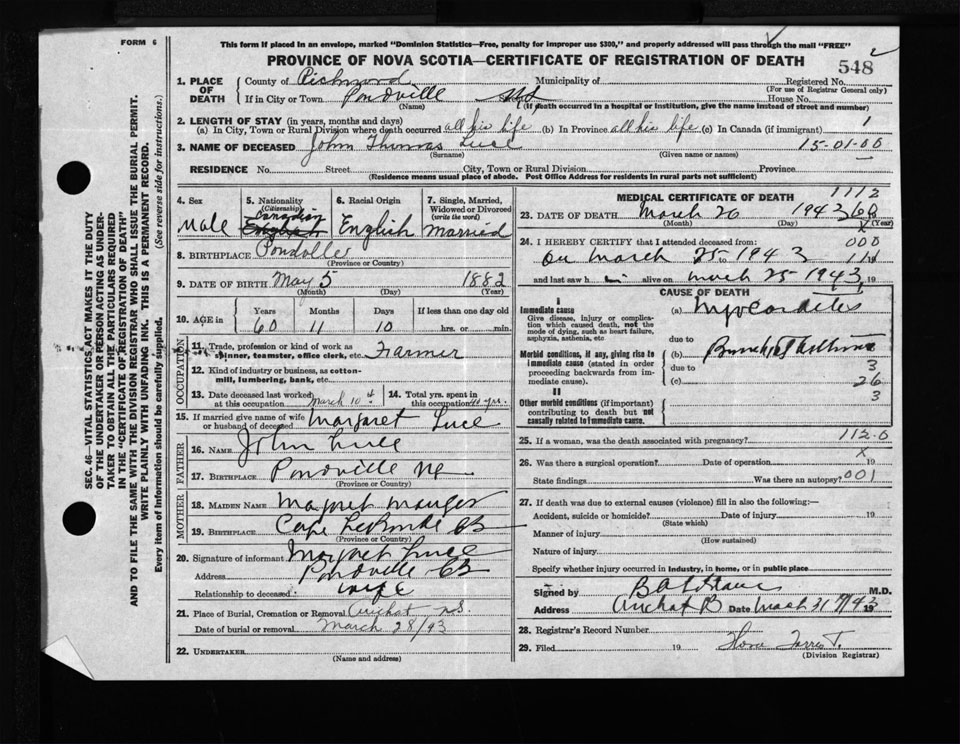 FORM 6
This form if placed in an envelope, marked "Dominion Statistics—Free, penalty for improper use $300," and properly addressed will pass through the mail "FREE"
PROVINCE OF NOVA SCOTIA—CERTIFICATE OF REGISTRATION OF DEATH
548
1. PLACE OF DEATH
County of Richmond Municipality of Registered No.
(For use of Registrar General only)
If in City or Town Pondville House No.
(Name) (If death occurred in a hospital or institution, give the name instead of street and number)
2. LENGTH OF STAY (in years, months and days)
(a) In City, Town or Rural Division where death occurred all his life (b) In Province all his life (c) In Canada (if immigrant) 1
3. NAME OF DECEASED John Thomas Luce 15-01-00
(Surname) (Given name or names)
RESIDENCE No. Street City, Town or Rural Division Province
(Residence means usual place of abode. Post Office Address for residents in rural parts not sufficient)
4. Sex
Male
5. Nationality (Citizenship)
Canadian
English
6. Racial Origin
English
7. Single, Married, Widowed or Divorced (write the word)
Married
8. BIRTHPLACE Pondville
(Province or Country)
9. DATE OF BIRTH May 5 1882
(Month) (Day) (Year)
10. AGE in Years Months Days If less than one day old
60 11 10 hrs. or min.
OCCUPATION
11. Trade, profession or kind of work as spinner, teamster, office clerk, etc. Farmer
12. Kind of industry or business, as cotton-mill, lumbering, bank, etc.
13. Date deceased last worked at this occupation March 10th
14. Total yrs. spent in this occupation yrs.
15. If married give name of wife or husband of deceased Margaret Luce
FATHER
16. NAME John Luce
17. BIRTHPLACE Pondville
(Province or Country)
MOTHER
18. MAIDEN NAME
19. BIRTHPLACE Cape CB
(Province or Country)
20. Signature of informant Margret Luce
Address Pondville CB
Relationship to deceased wife
21. Place of Burial, Cremation or Removal Arichat NS
Date of burial or removal March 28/43
22. UNDERTAKER
(Name and address)
MEDICAL CERTIFICATE OF DEATH
1112
23. DATE OF DEATH March 26 1943
(Year)
24. I HEREBY CERTIFY that I attended deceased from: 000
on March 25 to 1943
and last saw h alive on March 25 1943 19
CAUSE OF DEATH
I
Immediate cause
Give disease, injury or complication which caused death, not the mode of dying, such as heart failure, asphyxia, asthenia, etc
(a) Myocarditis
due to
Morbid conditions, if any, giving rise to immediate cause (stated in order proceeding backwards from immediate cause).
(b) Bronchial Asthma
due to 3
(c) 26
3
II
Other morbid conditions (if important) contributing to death but not causally related to immediate cause.
25. If a woman, was the death associated with pregnancy? 112.0
26. Was there a surgical operation? Date of operation X 19
State findings Was there an autopsy? 001
27. If death was due to external causes (violence) fill in also the following:—
Accident, suicide or homicide? Date of injury 19
(State which)
Manner of injury
(How sustained)
Nature of injury
Specify whether injury occurred in industry, in home, or in public place
Signed by M.D.
Address Arichat Date March 31 1943
28. Registrar's Record Number
29. Filed 19
(Division Registrar)
SEC. 46—VITAL STATISTICS ACT MAKES IT THE DUTY
OF THE UNDERTAKER OR PERSON ACTING AS UNDER-
TAKER TO OBTAIN ALL THE PARTICULARS REQUIRED
IN THE "CERTIFICATE OF REGISTRATION OF DEATH"
AND TO FILE THE SAME WITH THE DIVISION REGISTRAR WHO SHALL ISSUE THE BURIAL PERMIT.
WRITE PLAINLY WITH UNFADING INK. THIS IS A PERMANENT RECORD.
Every item of information should be carefully supplied. (See reverse side for instructions.)